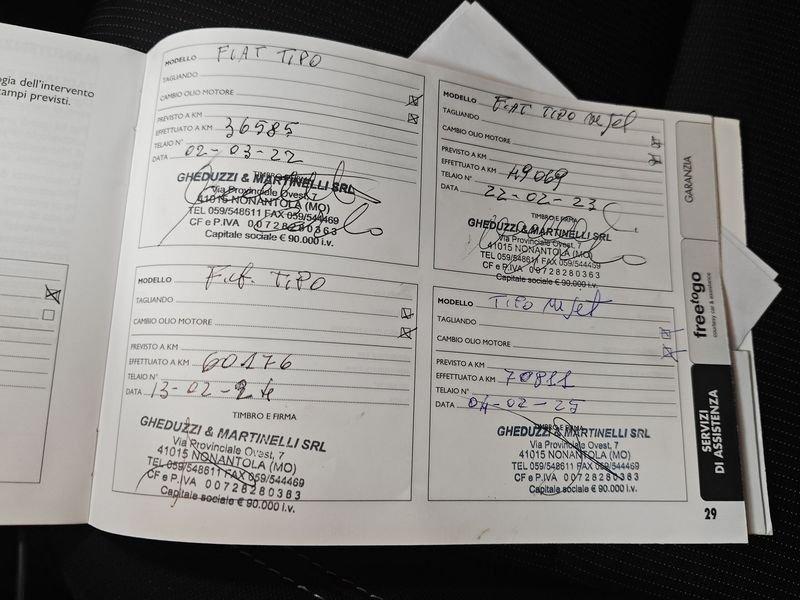 gia dell'intervento
ampi previsti.
MODELLO FIAT TIPO
TAGLIANDO
CAMBIO OLIO MOTORE
PREVISTO A KM
EFFETTUATO A KM 36585
TELAIO N°
DATA 02-03-22
TIMBRO E FIRMA
GHEDUZZI & MARTINELLI SRL
Via Provinciale Ovest, 7
41015 NONANTOLA (MO)
TEL 059/548611 FAX 059/544469
CF e P.IVA 00728280363
Capitale sociale € 90.000 i.v.
MODELLO FIAT TIPO MJet
TAGLIANDO
CAMBIO OLIO MOTORE
PREVISTO A KM
EFFETTUATO A KM 49069
TELAIO N°
DATA 22-02-23
TIMBRO E FIRMA
GHEDUZZI & MARTINELLI SRL
Via Provinciale Ovest, 7
41015 NONANTOLA (MO)
TEL 059/548611 FAX 059/544469
CF e P.IVA 00728280363
Capitale sociale € 90.000 i.v.
MODELLO Fiat TIPO
TAGLIANDO
CAMBIO OLIO MOTORE
PREVISTO A KM
EFFETTUATO A KM 60176
TELAIO N°
DATA 13-02-24
TIMBRO E FIRMA
GHEDUZZI & MARTINELLI SRL
Via Provinciale Ovest, 7
41015 NONANTOLA (MO)
TEL 059/548611 FAX 059/544469
CF e P.IVA 00728280363
Capitale sociale € 90.000 i.v.
MODELLO TIPO MJet
TAGLIANDO
CAMBIO OLIO MOTORE
PREVISTO A KM
EFFETTUATO A KM 70811
TELAIO N°
DATA 04-02-25
TIMBRO E FIRMA
GHEDUZZI & MARTINELLI SRL
Via Provinciale Ovest, 7
41015 NONANTOLA (MO)
TEL 059/548611 FAX 059/544469
CF e P.IVA 00728280363
Capitale sociale € 90.000 i.v.
GARANZIA
freetogo
courtesy car & assistance
SERVIZI
DI ASSISTENZA
29